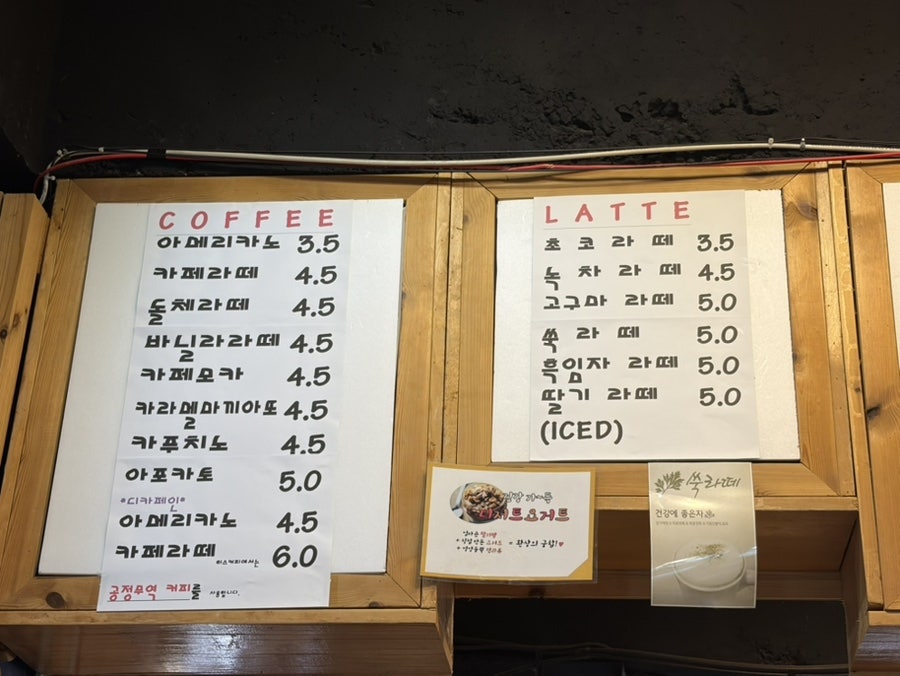 COFFEE
아메리카노 3.5
카페라떼 4.5
돌체라떼 4.5
바닐라라떼 4.5
카페모카 4.5
카라멜마끼아또 4.5
카푸치노 4.5
아포카토 5.0
*디카페인*
아메리카노 4.5
카페라떼 6.0
공정무역 커피를 사용합니다.
LATTE
초코라떼 3.5
녹차라떼 4.5
고구마 라떼 5.0
쑥라떼 5.0
흑임자 라떼 5.0
딸기 라떼 5.0
(ICED)
= 환상의 궁합!♥
쑥라떼
건강에 좋은